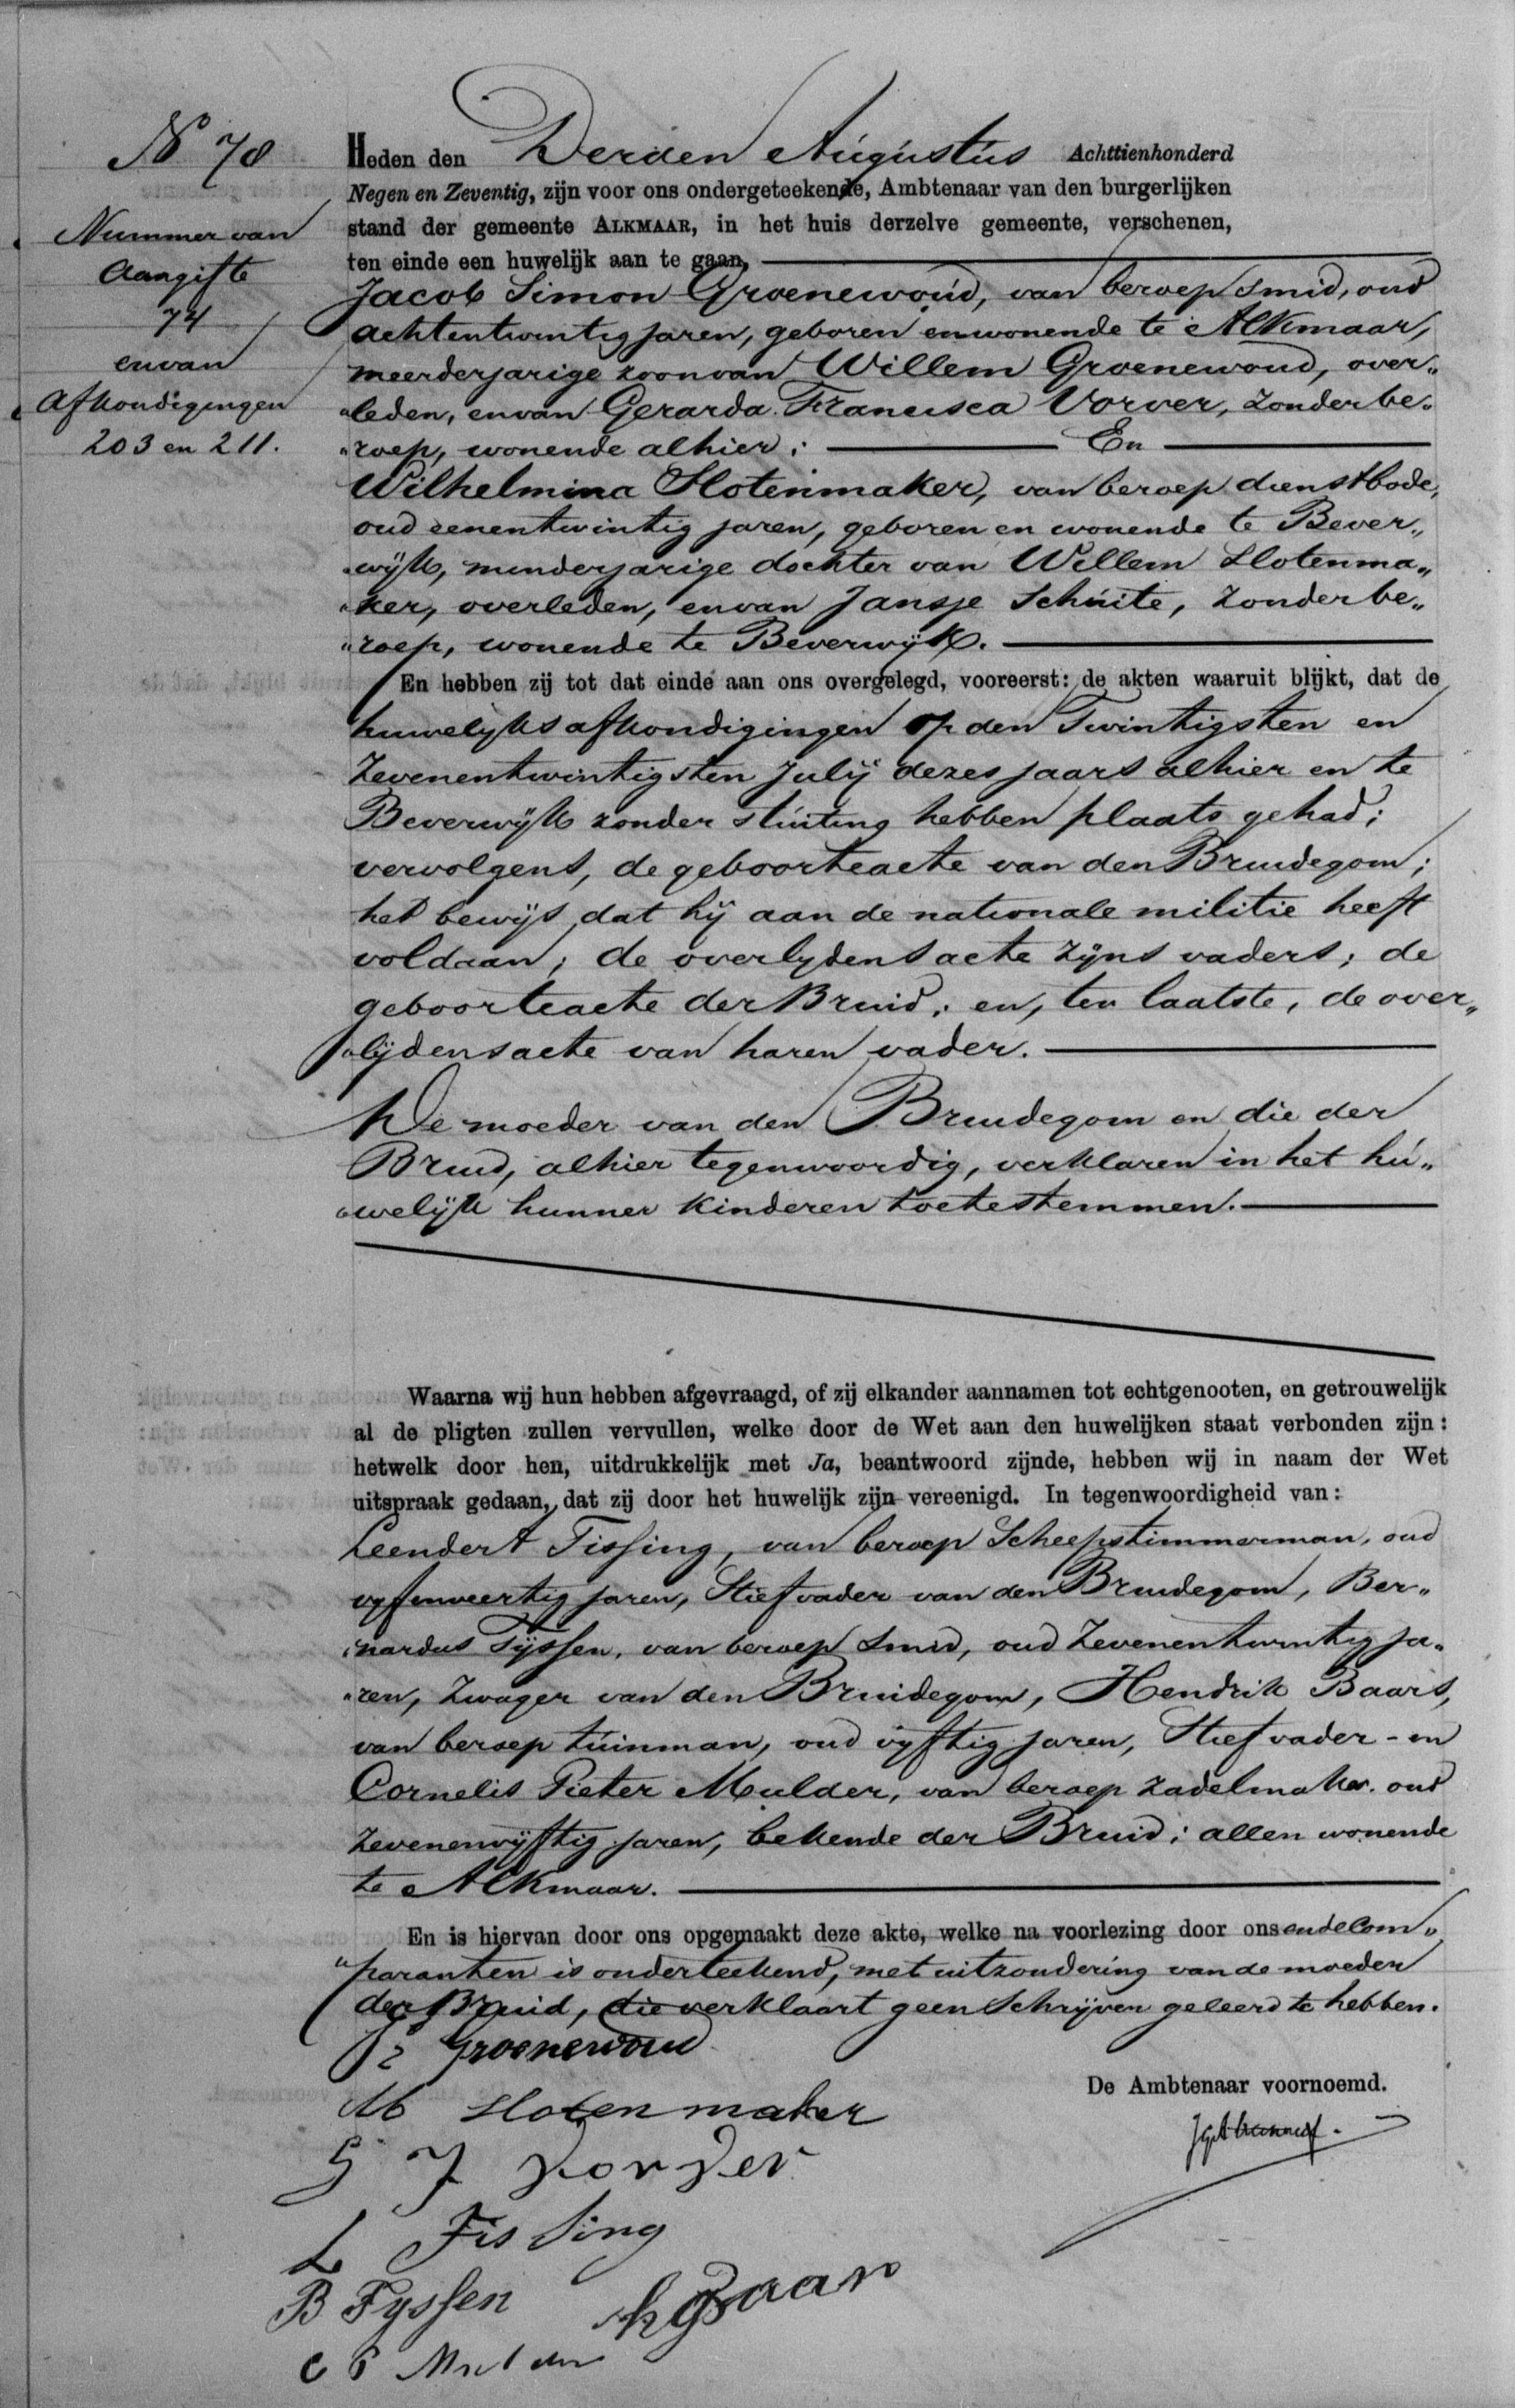 No 78
Nummer van
Aangifte
74
en van
Afkondigingen
203 en 211.
Heden den Derden Augustus Achttienhonderd
Negen en Zeventig, zijn voor ons ondergeteekende, Ambtenaar van den burgerlijken
stand der gemeente ALKMAAR, in het huis derzelve gemeente, verschenen,
ten einde een huwelijk aan te gaan,
Jacob Simon Groenewoud, van beroep smid, oud
achtentwintig jaren, geboren en wonende te Alkmaar,
meerderjarige zoon van Willem Groenewoud, over„
„leden, en van Gerarda Francisca Vorver, zonder be„
„roep, wonende alhier; En
Wilhelmina Slotenmaker, van beroep dienstbode,
oud eenentwintig jaren, geboren en wonende te Bever„
„wijk, minderjarige dochter van Willem Slotenma„
„ker, overleden, en van Jansje Schuite, zonder be„
„roep, wonende te Beverwijk.
En hebben zij tot dat einde aan ons overgelegd, vooreerst: de akten waaruit blijkt, dat de
huwelijksafkondigingen op den Twintigsten en
Zevenentwintigsten Julij dezes jaars alhier en te
Beverwijk zonder stuiting hebben plaats gehad;
vervolgens, de geboorteacte van den Bruidegom;
het bewijs dat hij aan de nationale militie heeft
voldaan; de overlydensacte zijns vaders; de
geboorteacte der Bruid; en, ten laatste, de over„
„lijdensacte van haren vader.
De moeder van den Bruidegom en die der
Bruid, alhier tegenwoordig, verklaren in het hu„
„welijk hunner kinderen toetestemmen.
Waarna wij hun hebben afgevraagd, of zij elkander aannamen tot echtgenooten, en getrouwelijk
al de pligten zullen vervullen, welke door de Wet aan den huwelijken staat verbonden zijn:
hetwelk door hen, uitdrukkelijk met Ja, beantwoord zijnde, hebben wij in naam der Wet
uitspraak gedaan, dat zij door het huwelijk zijn vereenigd. In tegenwoordigheid van:
Leendert Tissing, van beroep Scheepstimmerman, oud
vyfenveertig jaren, Stiefvader van den Bruidegom, Ber„
„nardus Tijssen, van beroep Smid, oud Zevenentwintig ja„
„ren, Zwager van den Bruidegom, Hendrik Baars,
van beroep tuinman, oud vyftig jaren, Stiefvader - en
Cornelis Pieter Mulder, van beroep zadelmaker. oud
Zevenenvijftig jaren, bekende der Bruid; allen wonende
te Alkmaar.
En is hiervan door ons opgemaakt deze akte, welke na voorlezing door ons en de Com„
„paranten is onderteekend, met uitzondering van de moeder
der Bruid, die verklaart geen Schrijven geleerd te hebben.
Groenewoud
Slotenmaker
De Ambtenaar voornoemd.
G F Vorver
L Tissing
B Tyssen
h Baars
C P Mulder